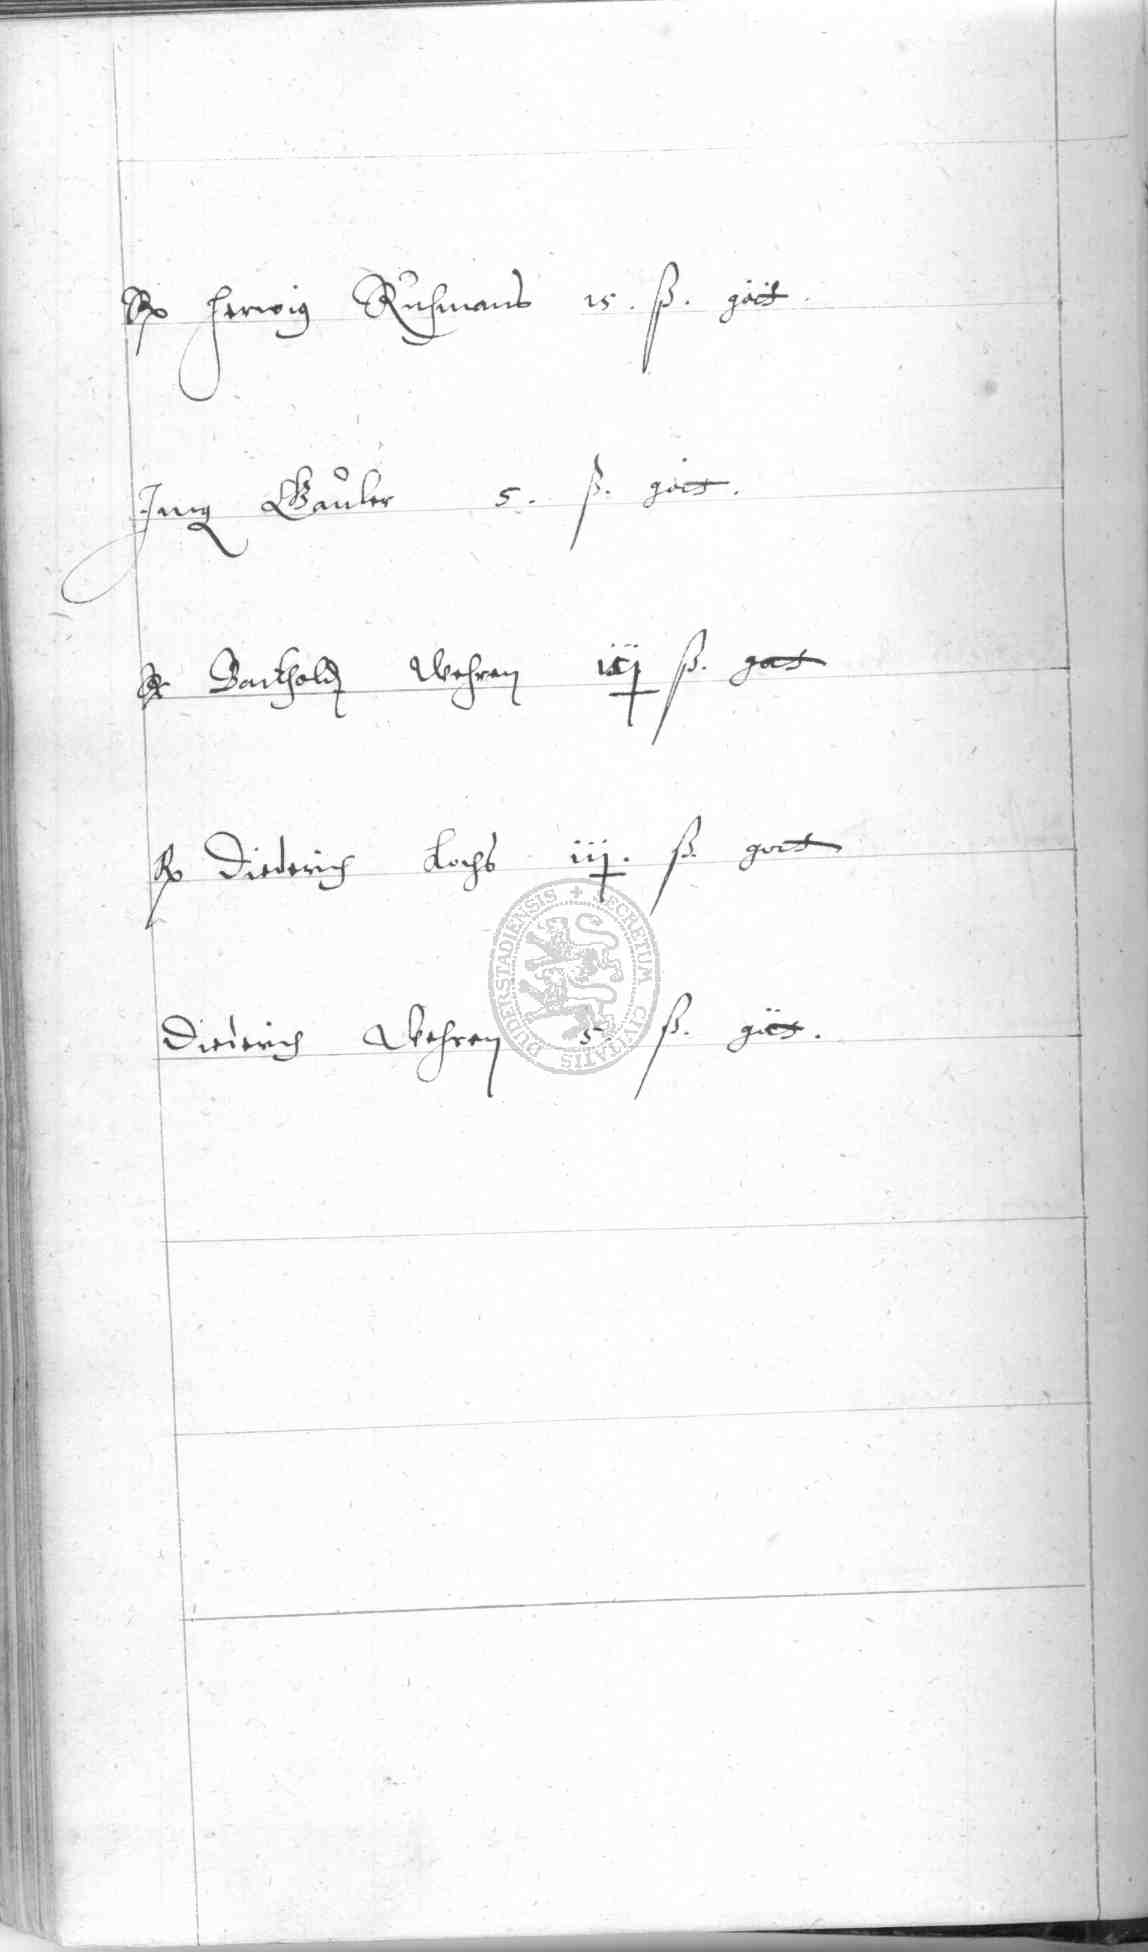 Rp Herwig Ruhmans 15. ß. gott.
Jung Gauler 5. ß. gott.
Rp Barthold Wehren iiij ß. gott
Rp Diederich Kochs iij. ß. gott
Diederich Wehren 5. ß. gott.
SECRETUM CIVITATIS DUDERSTADIENSIS